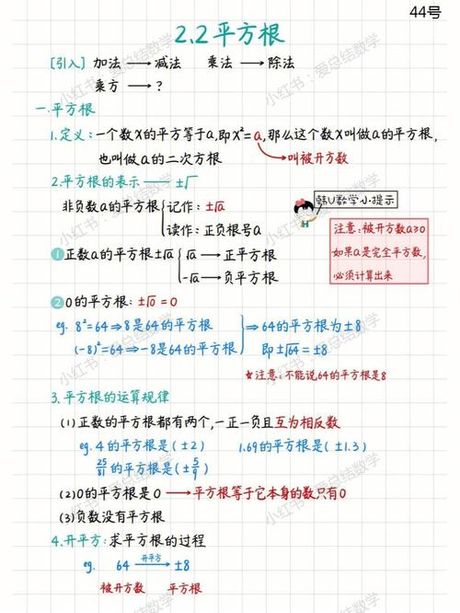 44号
2.2平方根
[引入] 加法 → 减法 乘法 → 除法
乘方 → ?
一.平方根
1.定义：一个数x的平方等于a,即x²=a,那么这个数x叫做a的平方根,
也叫做a的二次方根 叫被开方数
2.平方根的表示 —— ±√
非负数a的平方根 记作：±√a
读作：正负根号a
韩U数学小提示
注意：被开方数a≥0
如果a是完全平方数,
必须计算出来
①正数a的平方根±√a √a → 正平方根
-√a → 负平方根
②0的平方根：±√0=0
eg. 8²=64⇒8是64的平方根 ⇒64的平方根为±8
(-8)²=64⇒-8是64的平方根 即±√64=±8
※注意：不能说64的平方根是8
3.平方根的运算规律
(1)正数的平方根都有两个,一正一负且互为相反数
eg.4的平方根是(±2) 1.69的平方根是(±1.3)
25/81的平方根是(±5/9)
(2)0的平方根是0 → 平方根等于它本身的数只有0
(3)负数没有平方根
4.开平方：求平方根的过程
eg. 64 开平方→ ±8
被开方数 平方根
小红书：爱总结数学
小红书：爱总结数学
小红书：爱总结数学
小红书：爱总结数学
小红书：爱总结数学
小红书：爱总结数学
小红书：爱总结数学
小红书：爱总结数学